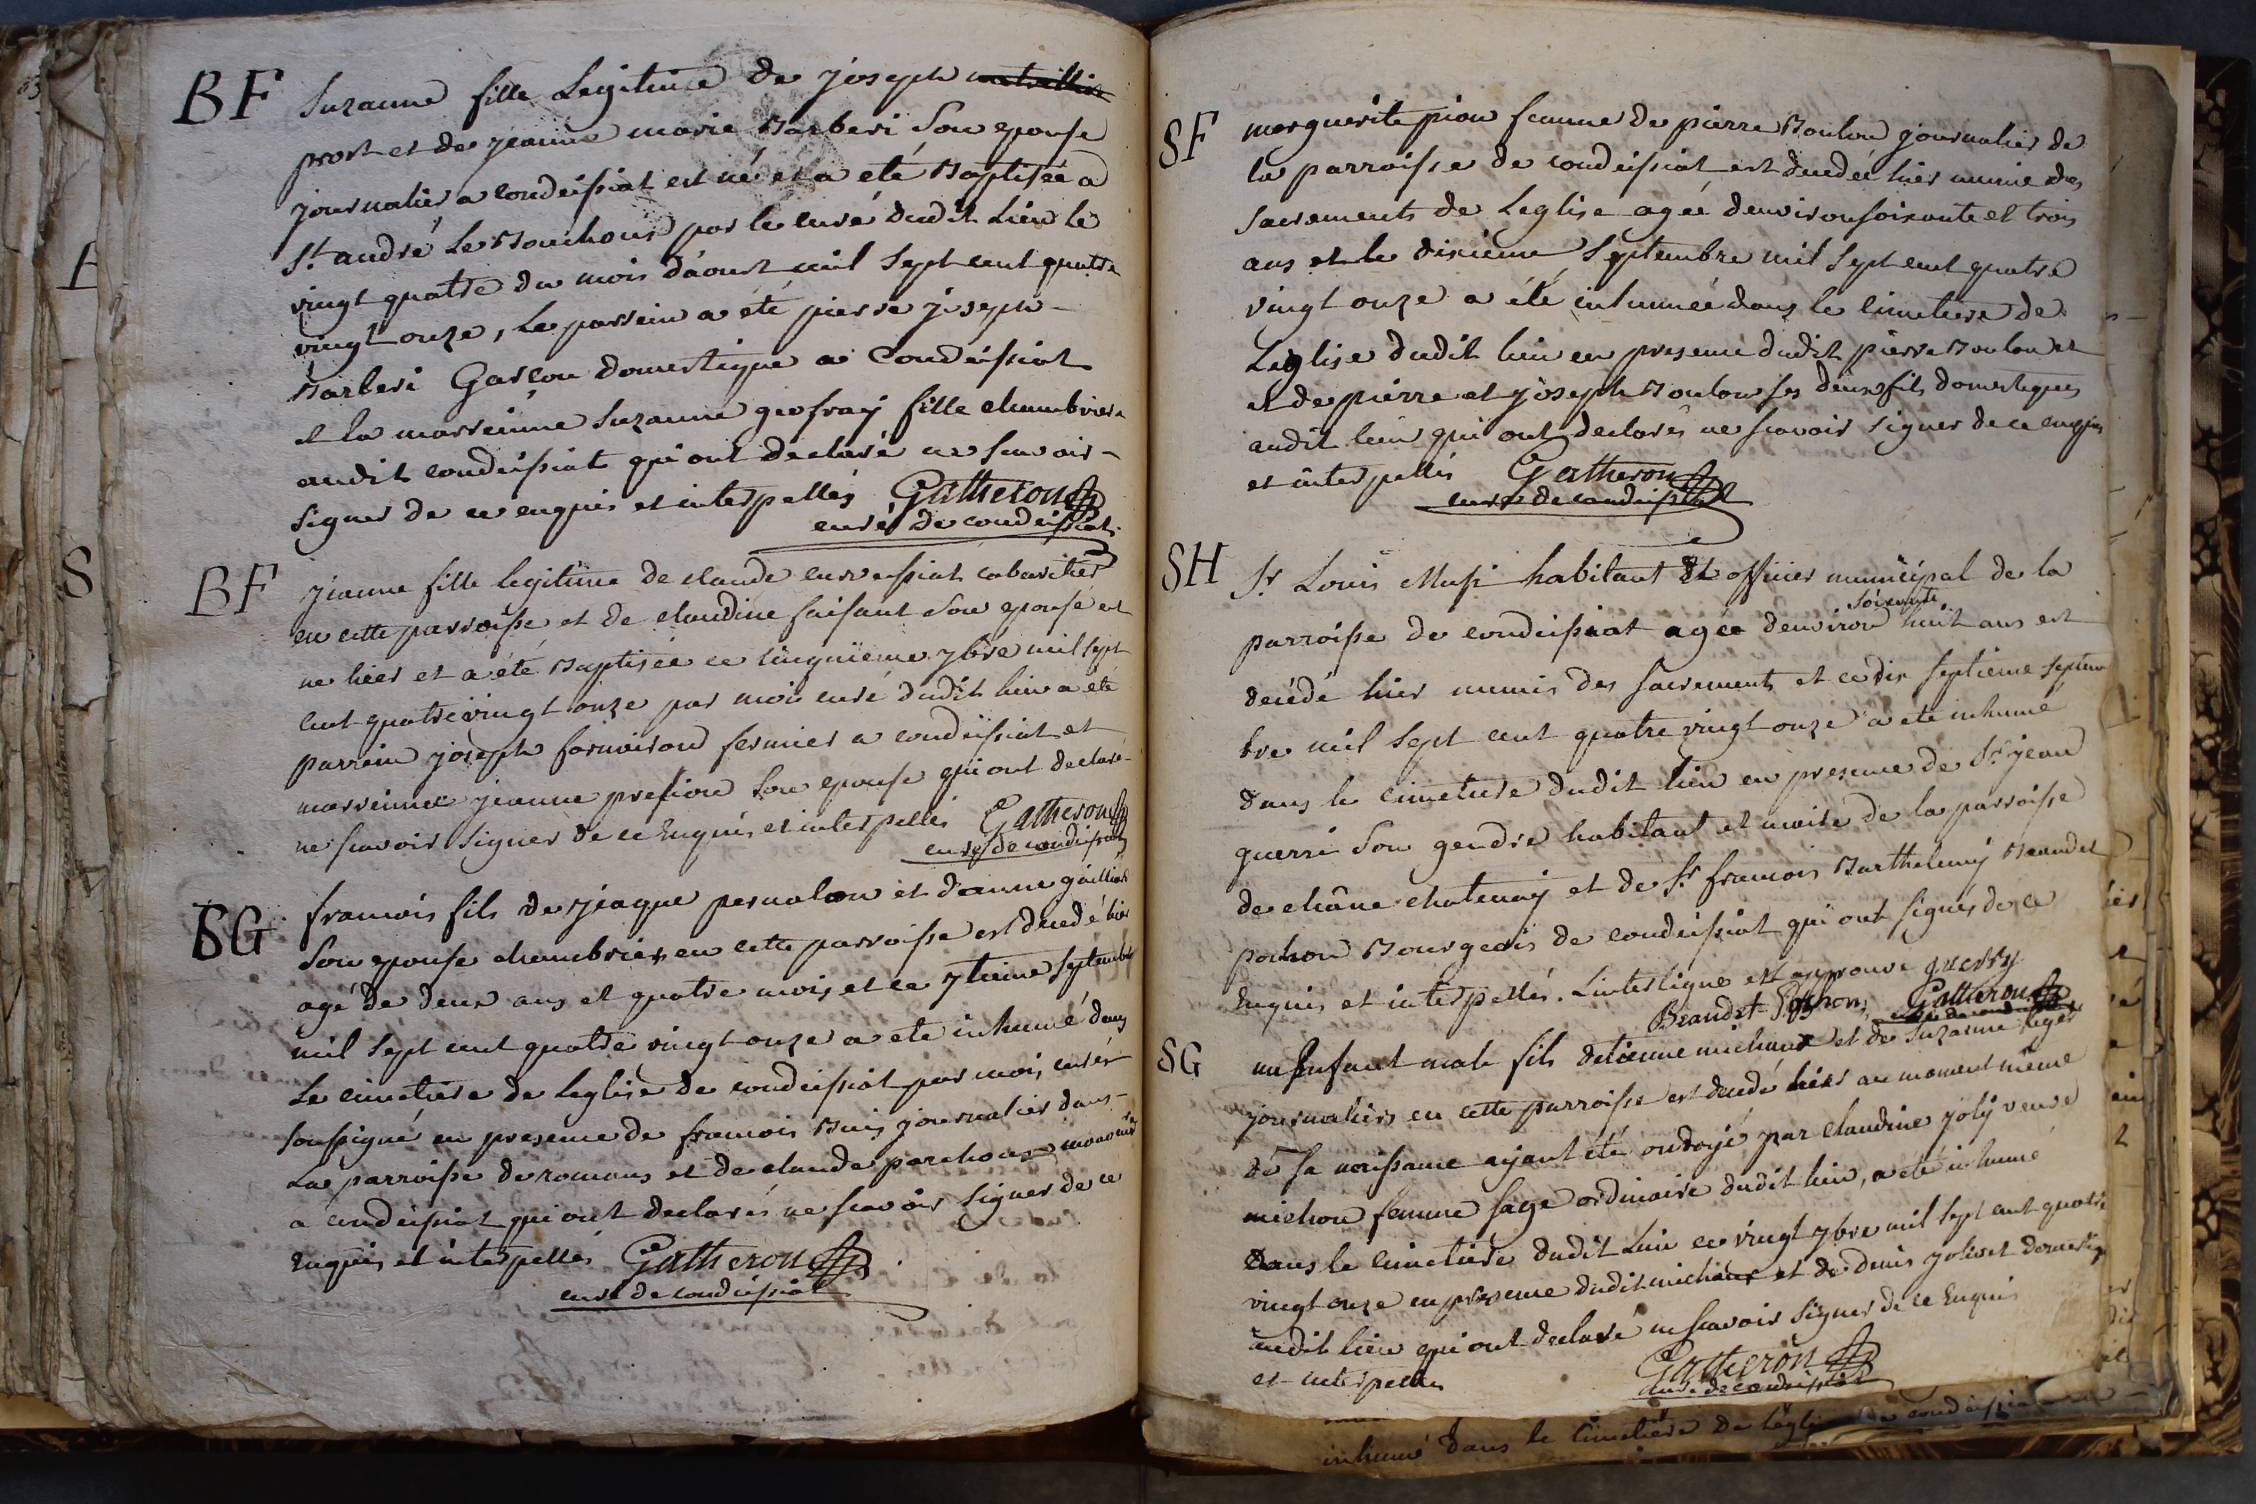 BF Suzanne fille Legitime de joseph
prost et de jeanne marie Barberi Son epouse
journalier a condeissiat est née et a eté Baptisée a
St. andré Le Bouchoux par le curé dudit Lieu le
vingt quatre du mois d'aoust mil sept cent quatre
vingt onze, Le parrein a été pierre joseph
Barberi Garçon domestique a Condeissiat
et la marreinne Suzanne geofray fille chambriere
audit condeissiat qui ont declaré ne scavoir
signer de ce enquis et interpellés Gatheron
curé de condeissiat.
BF jeanne fille legitime de claude curveissiat cabaretier
en cette parroisse et de claudine faisant Son epouse est
ne hier et a été Baptisée ce cinquieme 7bre mil sept
cent quatre vingt onze par moi curé dudit lieu a été
parrein joseph fornaison fermier a condeissiat et
marreinne jeanne Son epouse qui ont declaré
ne scavoir signer de ce Enquis et interpellés Gatheron
curé de condeissiat
SG francois fils de jacque pernolon et d'anne
Son epouse chambrier en cette parroisse est decedé hier
agé de deux ans et quatre mois et ce 7tieme Septembre
mil sept cent quatre vingt onze a ete inhumé dans
Le cimetiere de Leglise de condeissiat par moi curé
soussigné en presence de francois Buis journalier dans
La parroisse de romans et de claude perchoux
a condeissiat qui ont declarés ne scavoir signer de ce
Enquis et interpellés Gatheron
curé de condeissiat
SF marguerite pion femme de pierre Boulon journalier de
la parroisse de condeissiat est decedée hier munie des
sacrements de Leglise agée denviron soixante et trois
ans et le dixieme Septembre mil sept cent quatre
vingt onze a été inhumée dans le cimetiere de
Leglise dudit lieu en presence dudit pierre Boulon et
et de pierre et joseph Boulon ses deux fils domestiques
audit lieu qui ont declarés ne scavoir signer de ce enquis
et interpellés Gatheron
curé de condeissiat
SH Sr Louis Musi habitant Et officier municipal de la
parroisse de condeissiat agée denviron soixante huit ans est
decédé hier munis des sacrements et ce dix septieme septem
bre mil sept cent quatre vingt onze a ete inhumé
dans le cimetiere dudit lieu en presence de Sr jean
guerri Son gendre habitant et maire de la parroisse
de chane chatenay et de Sr francois Barthelemy Beaudet
pochon Bourgeois de condeissiat qui ont signés de ce
Enquis et interpellés. Linterligne est approuvé guerry
Beaudet Pochon Gatheron
curé de condeissiat
SG un Enfant male fils detienne michaud et de Suzanne leger
journaliers en cette parroisse est decedé hiers au moment même
de sa naissance ayant été ondoyé par claudine joly veuve
michon femme sage ordinaire dudit lieu, a eté inhumé
dans le cimetiere dudit Lieu ce vingt 7bre mil sept cent quatre
vingt onze en presence dudit michaud et de denis domestique
audit lieu qui ont declaré ne scavoir signer de ce Enquis
et interpellés Gatheron
curé de condeissiat
inhumé dans le Cimetiere de Legl de condeissiat